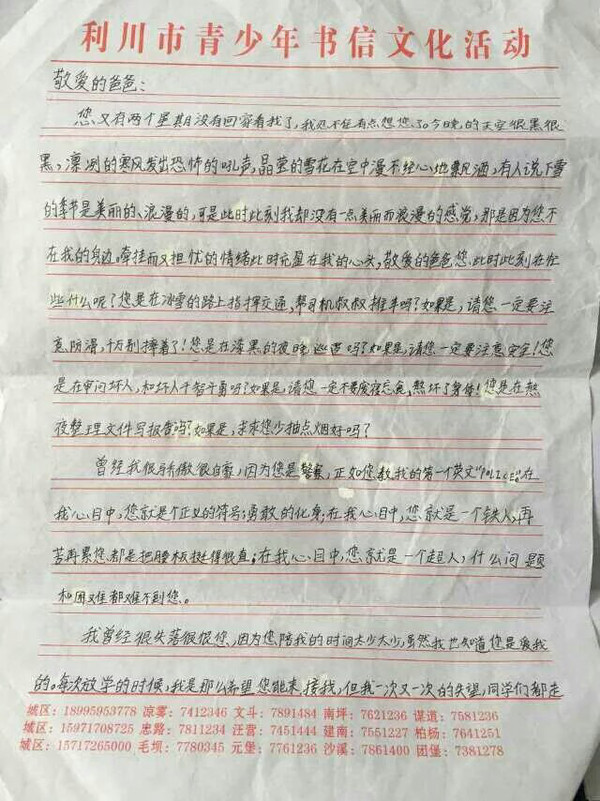 利川市青少年书信文化活动
敬爱的爸爸:
您又有两个星期没有回家看我了,我忍不住有点想您了。今晚的天空很黑很
黑,凛冽的寒风发出恐怖的吼声,晶莹的雪花在空中漫不经心地飘洒,有人说下雪
的季节是美丽的、浪漫的,可是此时此刻我却没有一点美丽而浪漫的感觉,那是因为您不
在我的身边。牵挂而又担忧的情绪此时充盈在我的心头,敬爱的爸爸您此时此刻在忙
些什么呢?您是在冰雪的路上指挥交通,帮司机叔叔推车吗?如果是,请您一定要注
意防滑,千万别摔着了!您是在漆黑的夜晚巡逻吗?如果是,请您一定要注意安全!您
是在审问坏人,和坏人斗智斗勇吗?如果是,请您一定不要废寝忘食,熬坏了身体!您是在熬
夜整理文件写报告吗?如果是,求求您少抽点烟好吗?
曾经我很骄傲很自豪,因为您是警察,正如您教我的第一个英文"POLICE"在
我心目中,您就是个正义的符号;勇敢的化身;在我心目中,您就是一个铁人,再
苦再累您都是把腰板挺得很直;在我心目中,您就是一个超人,什么问题
和困难都难不到您。
我曾经很失落很恨您,因为您陪我的时间太少太少,虽然我也知道您是爱我
的。每次放学的时候,我是那么希望您能来接我,但我一次又一次的失望,同学们都走
城区:18995953778 凉雾:7412346 文斗:7891484 南坪:7621236 谋道:7581236
城区:15971708725 忠路:7811234 汪营:7451444 建南:7551227 柏杨:7641251
城区:15717265000 毛坝:7780345 元堡:7761236 沙溪:7861400 团堡:7381278